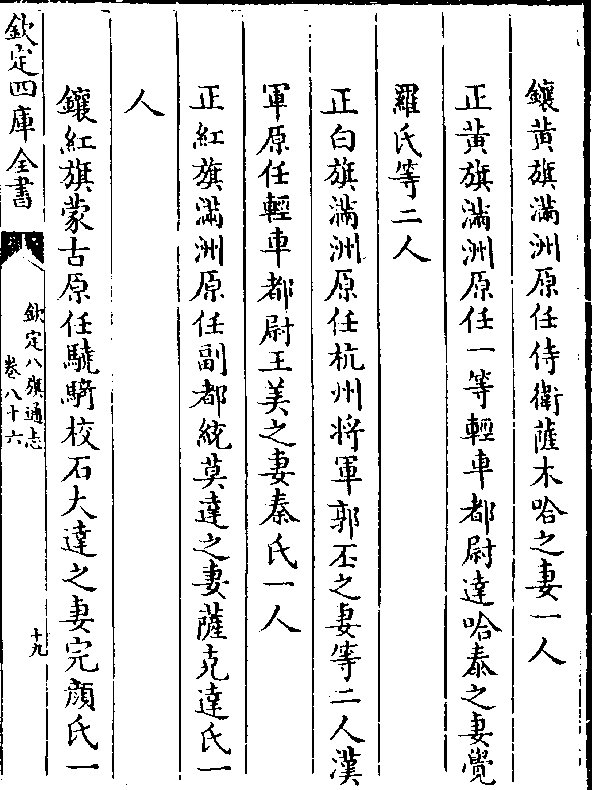 鑲黃旗滿洲原任侍衛薩木哈之妻一人
正黃旗滿洲原任一等輕車都尉達哈泰之妻覺
羅氏等二人
正白旗滿洲原任杭州將軍郭丕之妻等二人漢
軍原任輕車都尉王美之妻秦氏一人
正紅旗滿洲原任副都統莫達之妻薩克達氏一
人
鑲紅旗蒙古原任驍騎校石大達之妻完顔氏一
欽定四庫全書
欽定八旗通志
卷八十六
十九